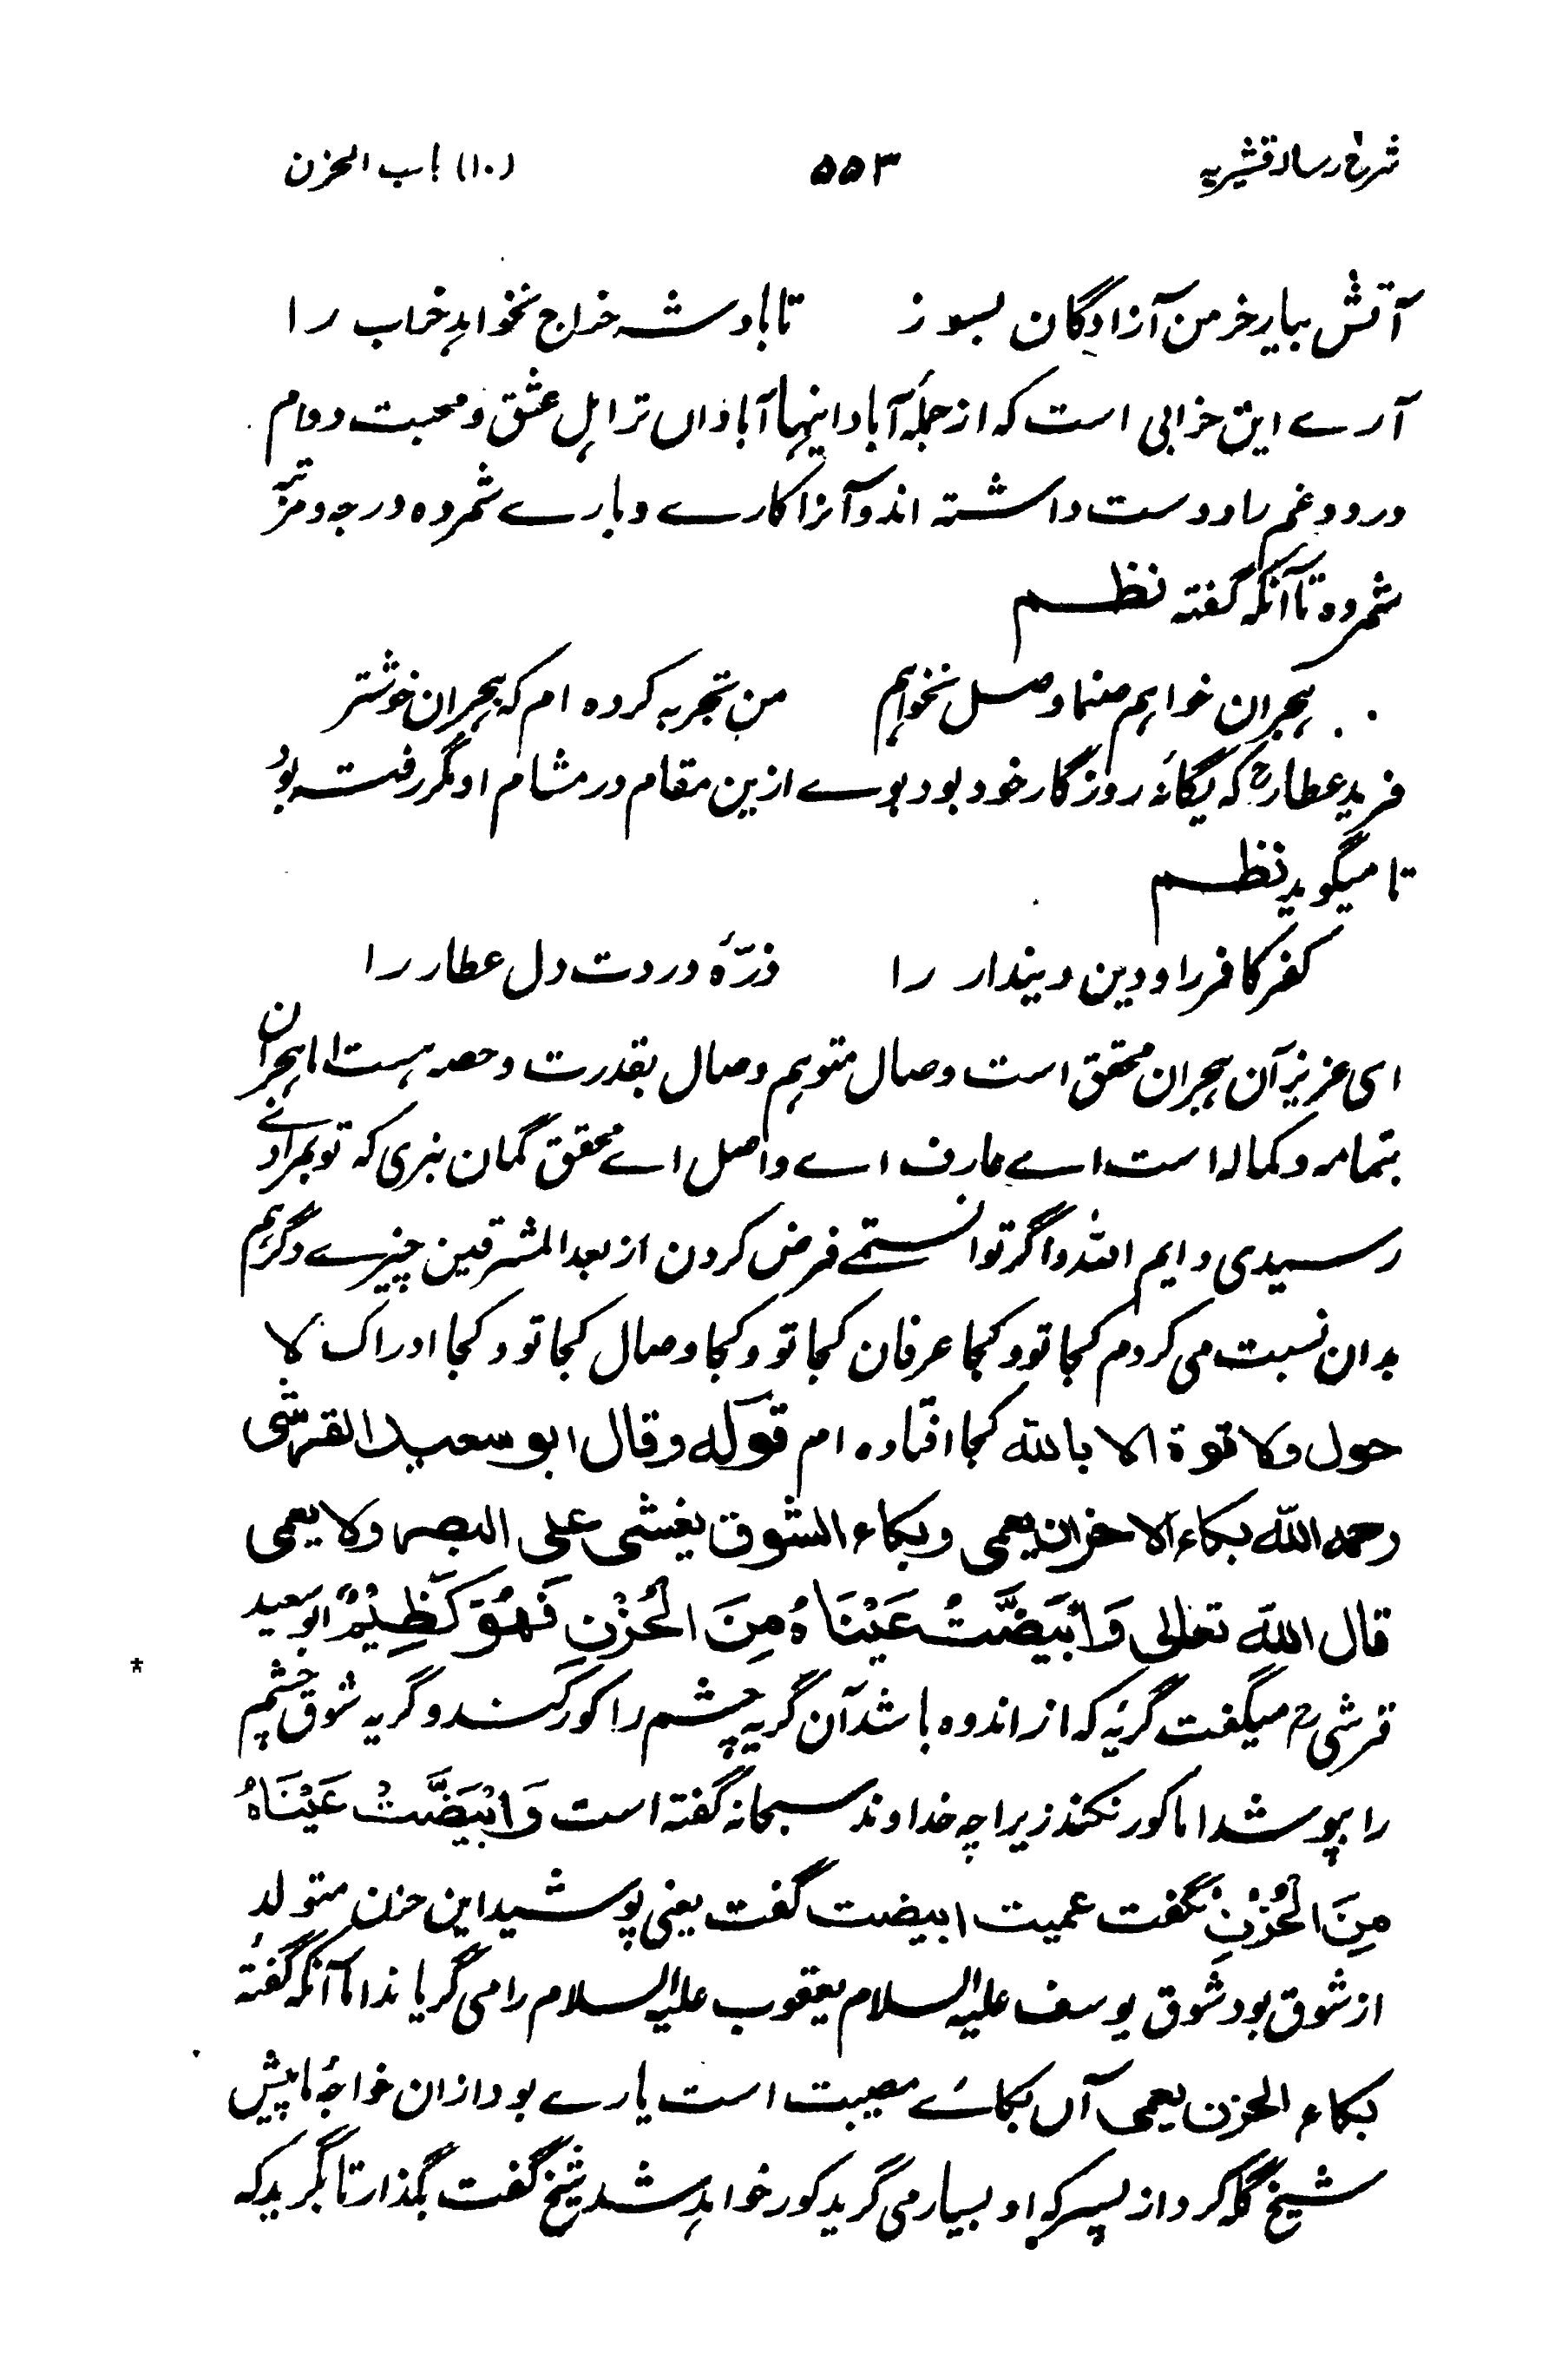 شرح رسالہ قشیریہ ۵۵۳ (۱۰) باب الحزن
آتش بیار خرمن آزادگان بسوز تا بادشہ خراج نخواہد خراب را
آرے این خرابی است کہ از جملہ آبادانیہا آباداں تر اہل عشق و محبت دوام
درد و غم را دوست داشتہ اند و آنرا کارے و بارے شمردہ درجہ و مرتبہ
شمردہ تا آنکہ گفتہ نظم
ہجران خواہم صنما وصل نخواہم من تجربہ کردہ ام کہ ہجران خوشتر
فرید عطارؒ کہ یگانۂ روزگار خود بود بوے ازین مقام در مشام او مگر رفتہ بود
تا میگوید نظم
کفر کافر را و دین دیندار را ذرّۂ دردت دل عطار را
ای عزیز آن ہجران محقق است وصال متوہم وصال بقدرت و حصہ ہست اما ہجران
بتمامہ و کمالہ است اے عارف اے واصل اے محقق گمان نبری کہ تو بمرادے
رسیدی و ایم اللہ و اگر توانستمے فرض کردن از بعد المشرقین چیزے دگر ہم
بدان نسبت می کردم کجا تو و کجا عرفان کجا تو و کجا وصال کجا تو و کجا ادراک لا
حول ولا قوة الا باللہ کجا افتادہ ام قوله وقال ابو سعید القرشی
رحمه اللّٰه بکاء الاحزان یعمی وبکاء الشوق یغشی علی البصر ولا یعمی
قال اللّٰه تعالی وَابْيَضَّتْ عَيْنَاهُ مِنَ الْحُزْنِ فَهُوَ كَظِيْمٌ ابو سعید
قرشیؒ میگفت گریۂ کہ از اندوہ باشد آن گریہ چشم را کور کند و گریہ شوق چشم
را بپوشد اما کور نکند زیراچہ خداوند سبحانہ گفتہ است وَابْيَضَّتْ عَيْنَاهُ
مِنَ الْحُزْنِ نگفت عمیت ابیضت گفت یعنی پوشید این حزن متولد
از شوق بود شوق یوسف علیہ السلام یعقوب علیہ السلام را می گریاند اما آنکہ گفتہ
بکاء الحزن یعمی آں بکائے مصیبت است یارے بود ازان خواجۂ ما پیش
شیخ گلہ کرد از پسر کہ او بسیار می گرید کور خواہد شد شیخ گفت بگذار تا بگرید کہ
*